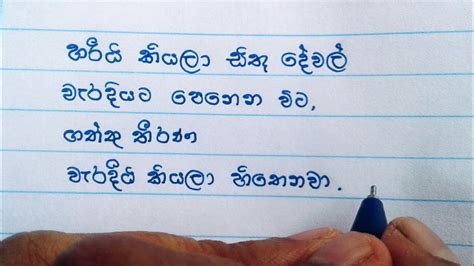 හරියි කියලා සිතූ දේවල්
වැරදියට පෙනෙන විට,
ගත්තු තීරණ
වැරදියි කියලා හිතෙනවා.